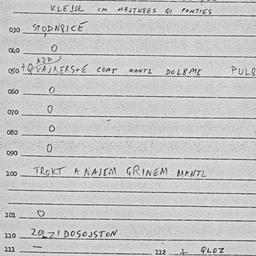 KLEJDL CM MAJTKPES QI PANTIES
030 STODNRICE
040 0
A2D
050 + QVAJRERS+E COAT MANTL DOLBME PULB
060 0
070 0
080 0
090 0
100 TROKT A NAJEM GRINEM MANTL
101 0
110 ZOLZIDOSOJSTON
111 — 112 + GLOZ